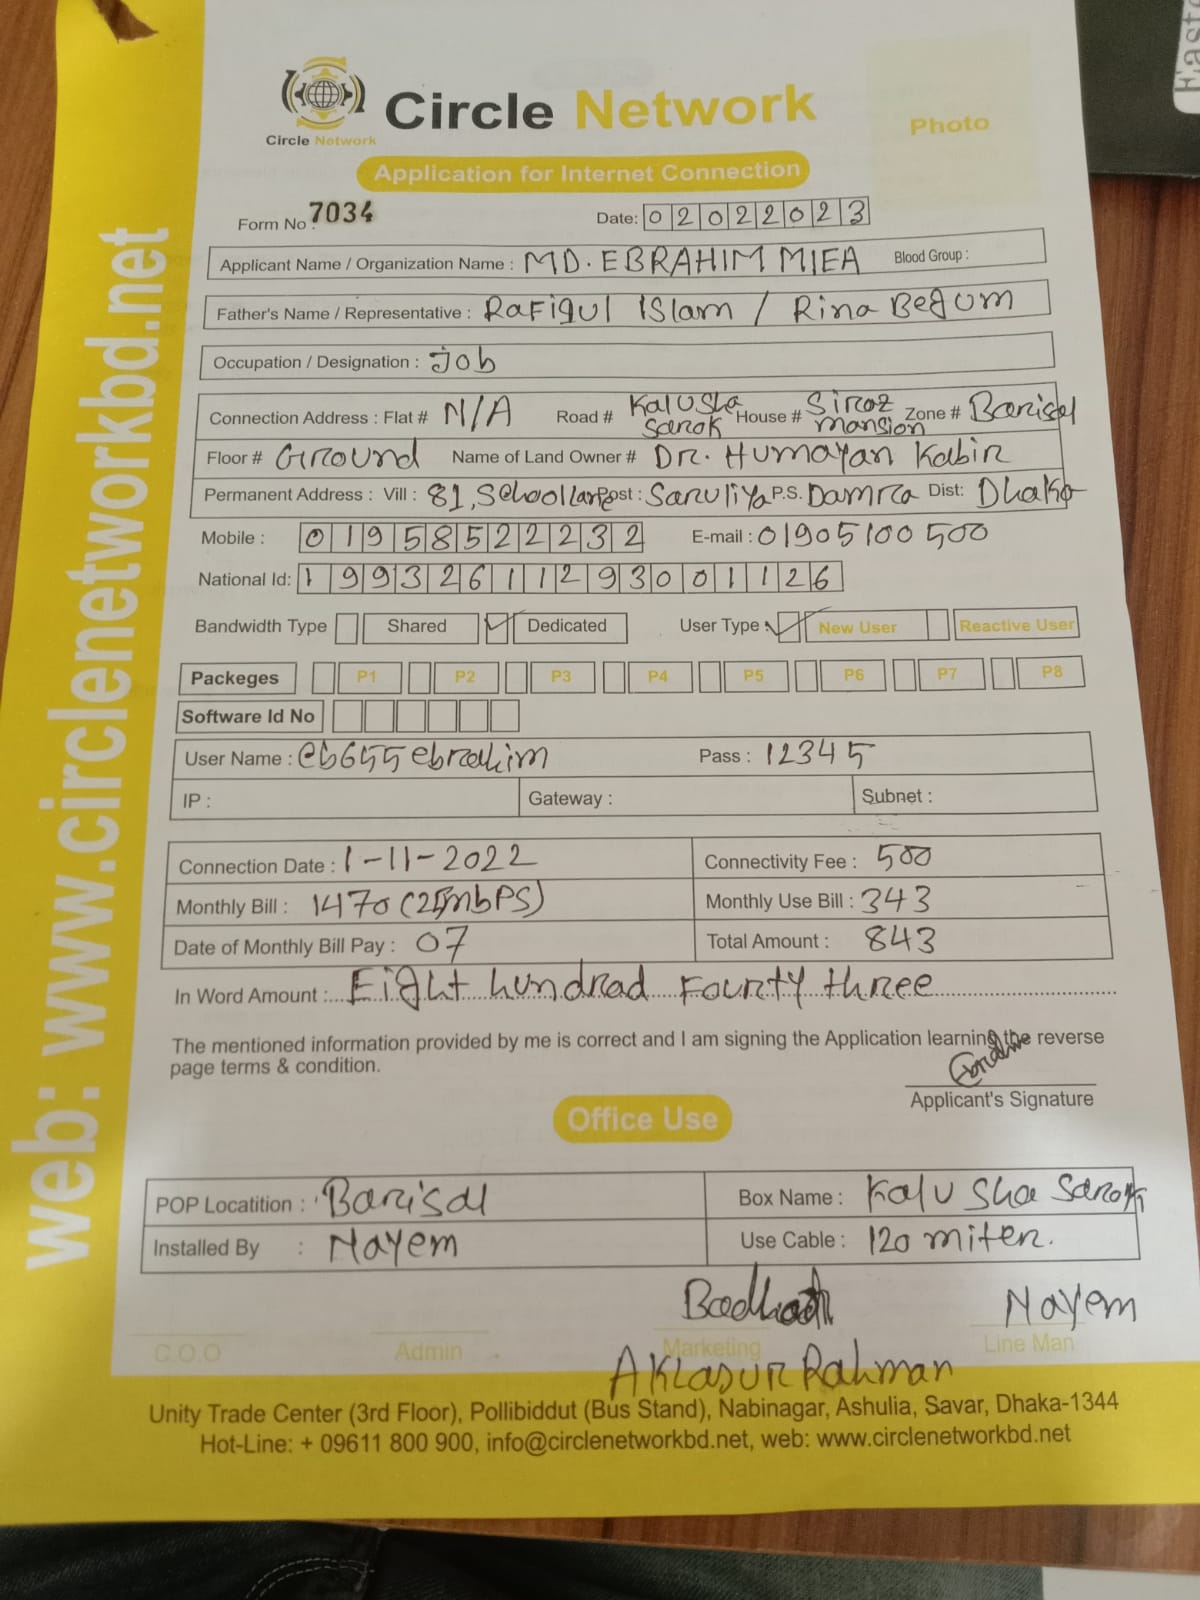 Easte
Circle Network
Circle Network
Photo
Application for Internet Connection
Form No : 7034 Date: 02022023
Applicant Name / Organization Name : MD. EBRAHIM MIEA Blood Group :
Father's Name / Representative : Rafiqul Islam / Rina Begum
Occupation / Designation : Job
Connection Address : Flat # N/A Road # Kalusha Sarok House # Siraz mansion Zone # Barisal
Floor # Ground Name of Land Owner # DR. Humayan Kabir
Permanent Address : Vill : 81, School Post : Saruliya P.S. Damra Dist: Dhaka
Mobile : 01958522232 E-mail : 01905100500
National Id: 19932611293001126
Bandwidth Type Shared Dedicated User Type New User Reactive User
Packeges P1 P2 P3 P4 P5 P6 P7 P8
Software Id No
User Name : eb655ebrahim Pass : 12345
IP : Gateway : Subnet :
Connection Date : 1-11-2022 Connectivity Fee : 500
Monthly Bill : 1470 (25mbPS) Monthly Use Bill : 343
Date of Monthly Bill Pay : 07 Total Amount : 843
In Word Amount : Eight hundrad Fourty three
The mentioned information provided by me is correct and I am signing the Application learning the reverse
page terms & condition.
Applicant's Signature
Office Use
POP Locatition : Barisal Box Name : Kalu Sha Sarok
Installed By : Nayem Use Cable : 120 miter.
Nayem
C.O.O Admin Marketing Line Man
AKLASUR Rahman
Unity Trade Center (3rd Floor), Pollibiddut (Bus Stand), Nabinagar, Ashulia, Savar, Dhaka-1344
Hot-Line: + 09611 800 900, info@circlenetworkbd.net, web: www.circlenetworkbd.net
web: www.circlenetworkbd.net